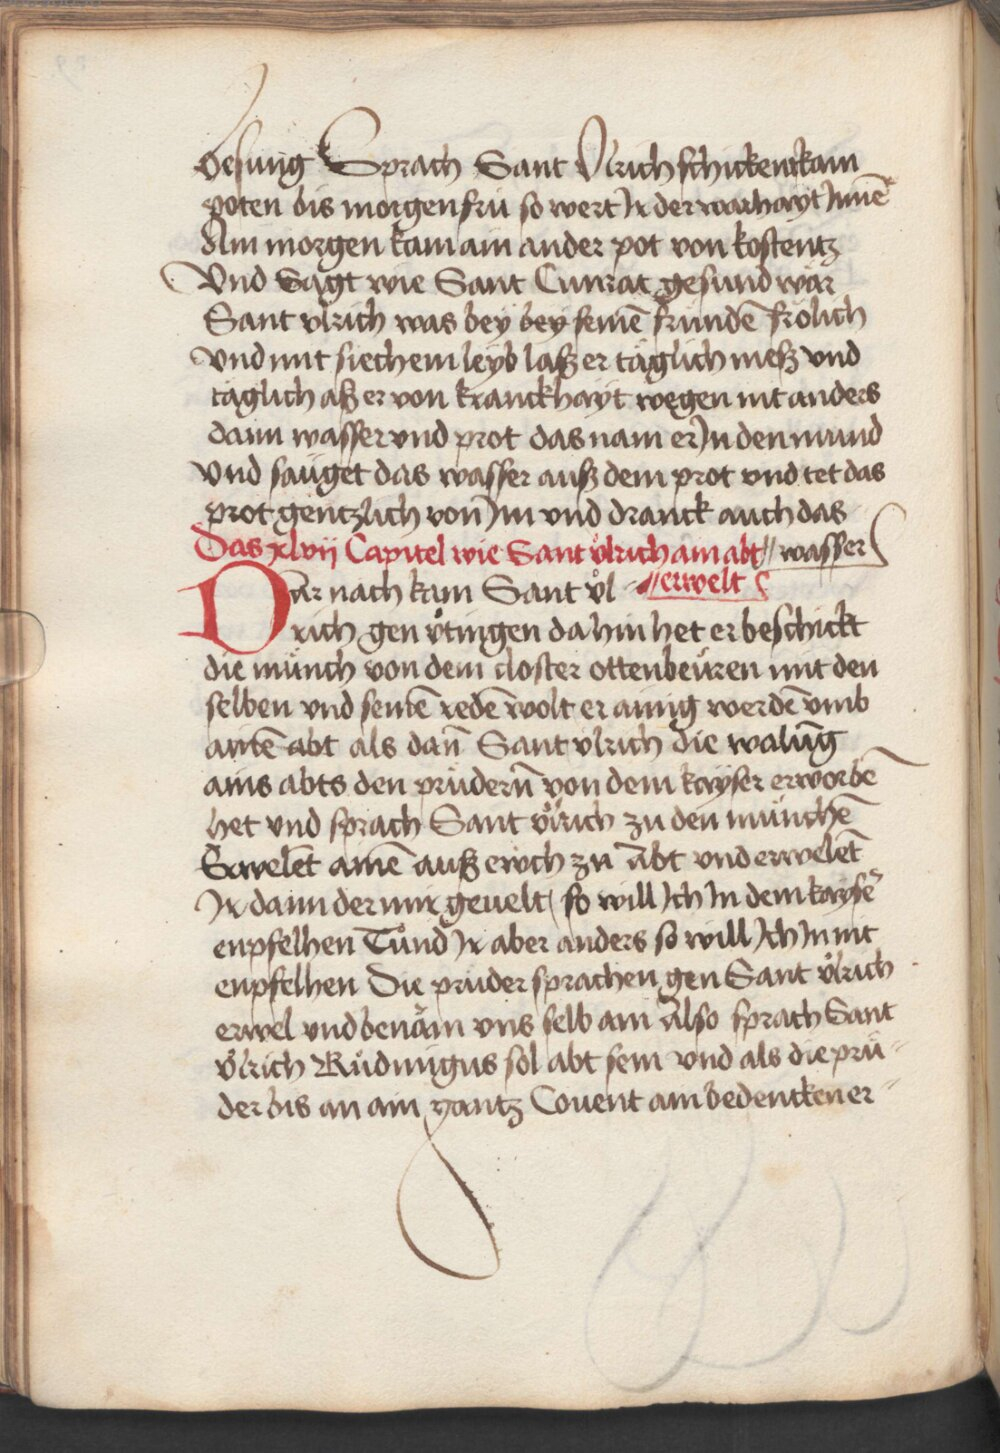 Besung Sprach Sant Vlrich schicken kain
poten bis morgen frü so wert Ir der warhayt Innē
Am morgen kam ain ander pot von kostentz
Vnd Sagt wie Sant Cunrat gesund wär
Sant vlrich was bey bey seinē fründē frölich
vnd mit siechem leyb laß er täglich meß vnd
täglich aß er von kranckhayt wegen nit anders
dann wasser vnd prot das nam er In den mund
vnd sauget das wasser auß dem prot vnd tet das
prot gentzlich von Im vnd dranck auch das
Das xlvij Capitel wie Sant vͦlrich ain abt // wasser
// erwelt
Dar nach kam Sant vͦl
rich gen vͦtingen da hin het er beschickt
die münch von dem closter ottenbeüren mit den
selben vnd seinē redē wolt er ainig werdē vmb
ainē abt als dañ Sant vlrich die walūg
ains abts den prüdern̄ von dem kayser erworbē
het vnd sprach Sant vͦlrich zu den münchē
Erwelēt ainē auß ewch zu Abt vnd erwelēt
Ir dann der mir geuelt so will Ich In dem kayser
enpfelhen Tuͦnd Ir aber anders so will Ich In nit
enpfelhen Die prüder sprachen gen Sant vͦlrich
erwel vnd benäm vns selb ain Also sprach Sant
vͦlrich Ruͦdungus sol abt sein vnd als die prü
der bis an ain gantz Couent ain bedencken er